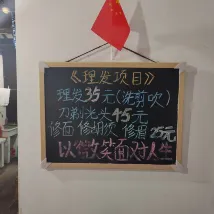 《理发项目》
理发35元(洗剪吹)
刀剃光头45元
修面 修胡须 修眉 25元
以微笑面对人生